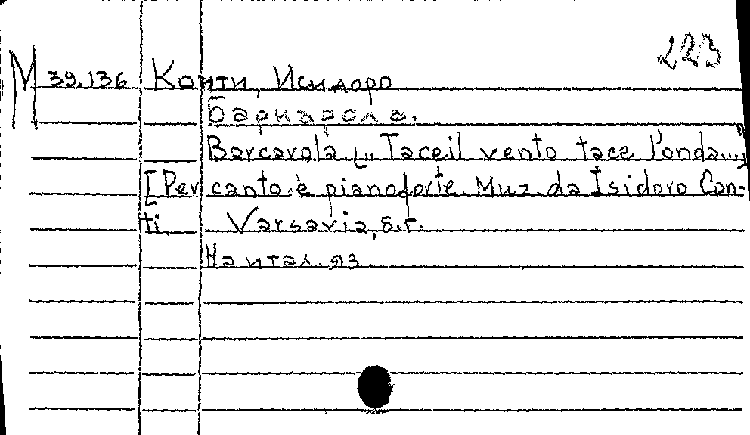 223
М 39.136 Конти, Исидоро
Баркарола.
Barcarola („Taceil vento tace l'onda..."
[Per canto è pianoforte Muz. da Isidoro Con-
ti. Varsavia, б.г.
На итал. яз